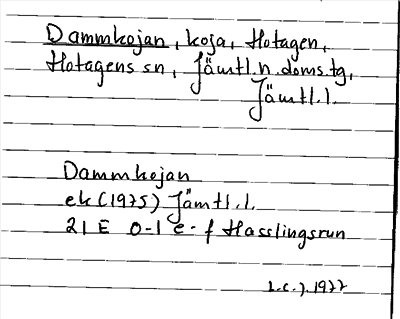 Dammkojan, koja, Hotagen,
Hotagens sn, Jämtl.n.doms.tg,
Jämtl.l.
Dammkojan
ek (1975) Jämtl.l.
21 E 0-1 e-f Hasslingsrun
1977